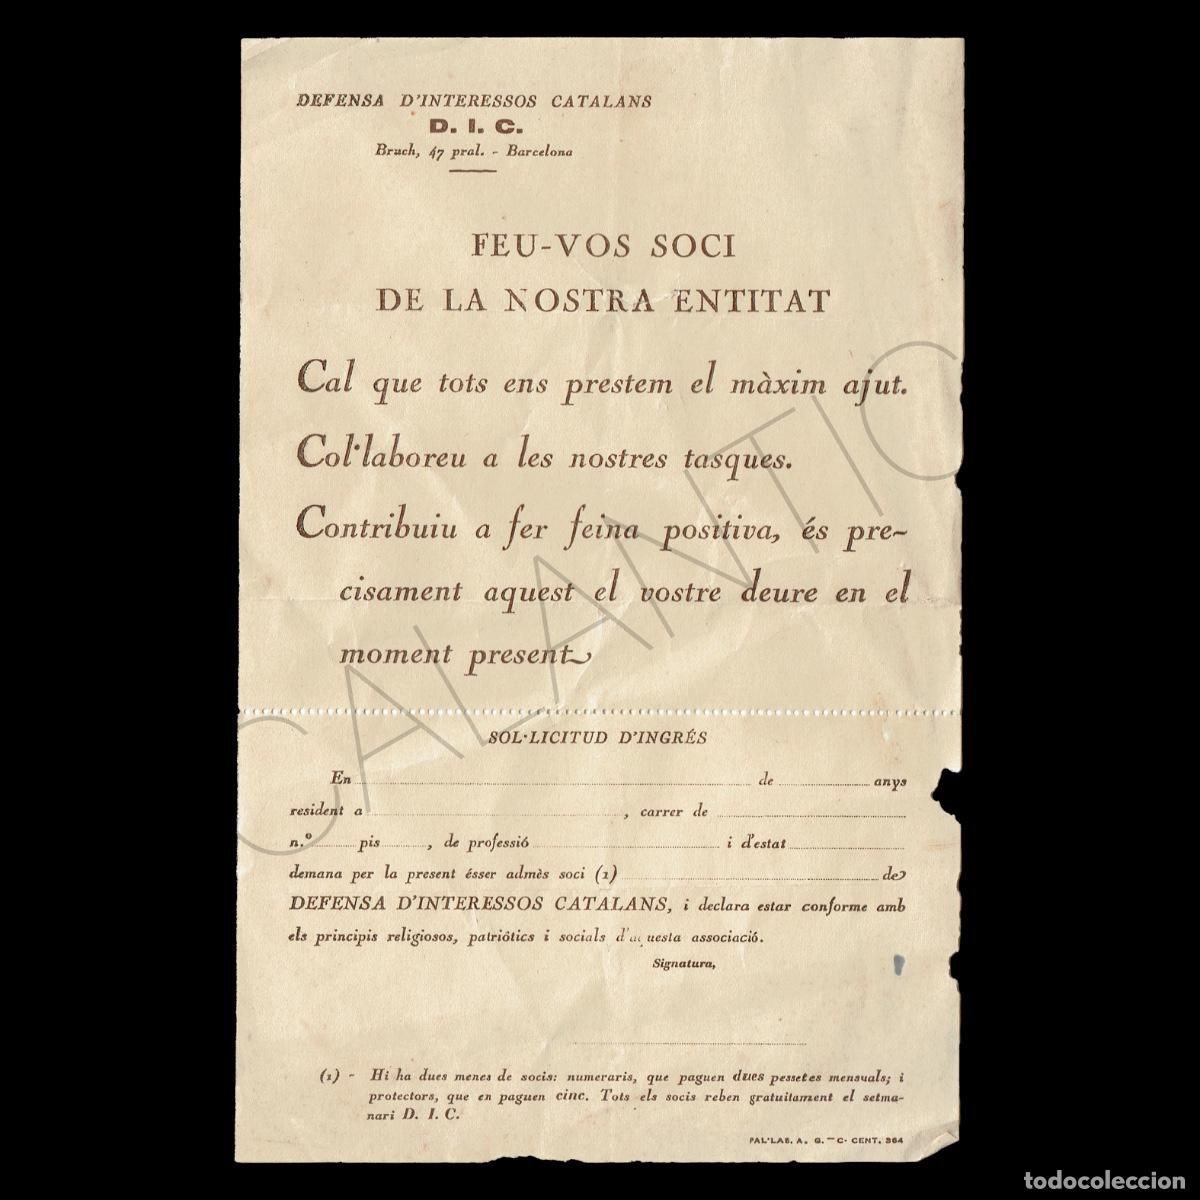 DEFENSA D'INTERESSOS CATALANS
D. I. C.
Bruch, 47 pral. - Barcelona
FEU-VOS SOCI
DE LA NOSTRA ENTITAT
Cal que tots ens prestem el màxim ajut.
Col·laboreu a les nostres tasques.
Contribuiu a fer feina positiva, és pre-
cisament aquest el vostre deure en el
moment present
SOL·LICITUD D'INGRÉS
En de anys
resident a , carrer de
n.º pis , de professió i d'estat
demana per la present ésser admès soci (1) de
DEFENSA D'INTERESSOS CATALANS, i declara estar conforme amb
els principis religiosos, patriòtics i socials d'aquesta associació.
Signatura,
(1) - Hi ha dues menes de socis: numeraris, que paguen dues pessetes mensuals; i
protectors, que en paguen cinc. Tots els socis reben gratuitament el setma-
nari D. I. C.
PAL·LAS. A. G. - C. CENT. 364
CALANTIC
todocoleccion